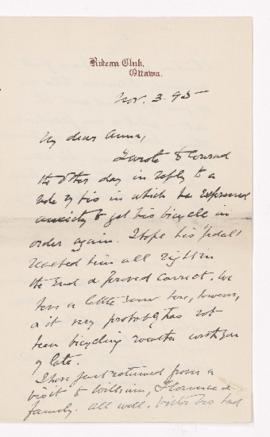 Rideau Club,
Ottawa.
Nov. 3. 95
My dear Anna,
I wrote to Conrad
the other day in reply to a
note of his in which he expressed
anxiety to get his bicycle in
order again. I hope his pedals
reached him all right in
the end & proved correct. We
have a little snow here, however,
& it very probably has not
been bicycling weather with you
of late.
I have just returned from a
visit to William, Florence &
family. All well. Victor has had